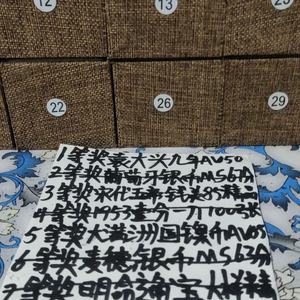 12
13
22
26
29
1等奖袁大头九年AU50
2等奖葡萄牙银币MS61分
3等奖宋代五串钱录85精品
4等奖1953壹分一刀100张
5等奖大满洲国镍币AU55
6等奖麦穗银币MS63分
7等奖明命通宝大样美